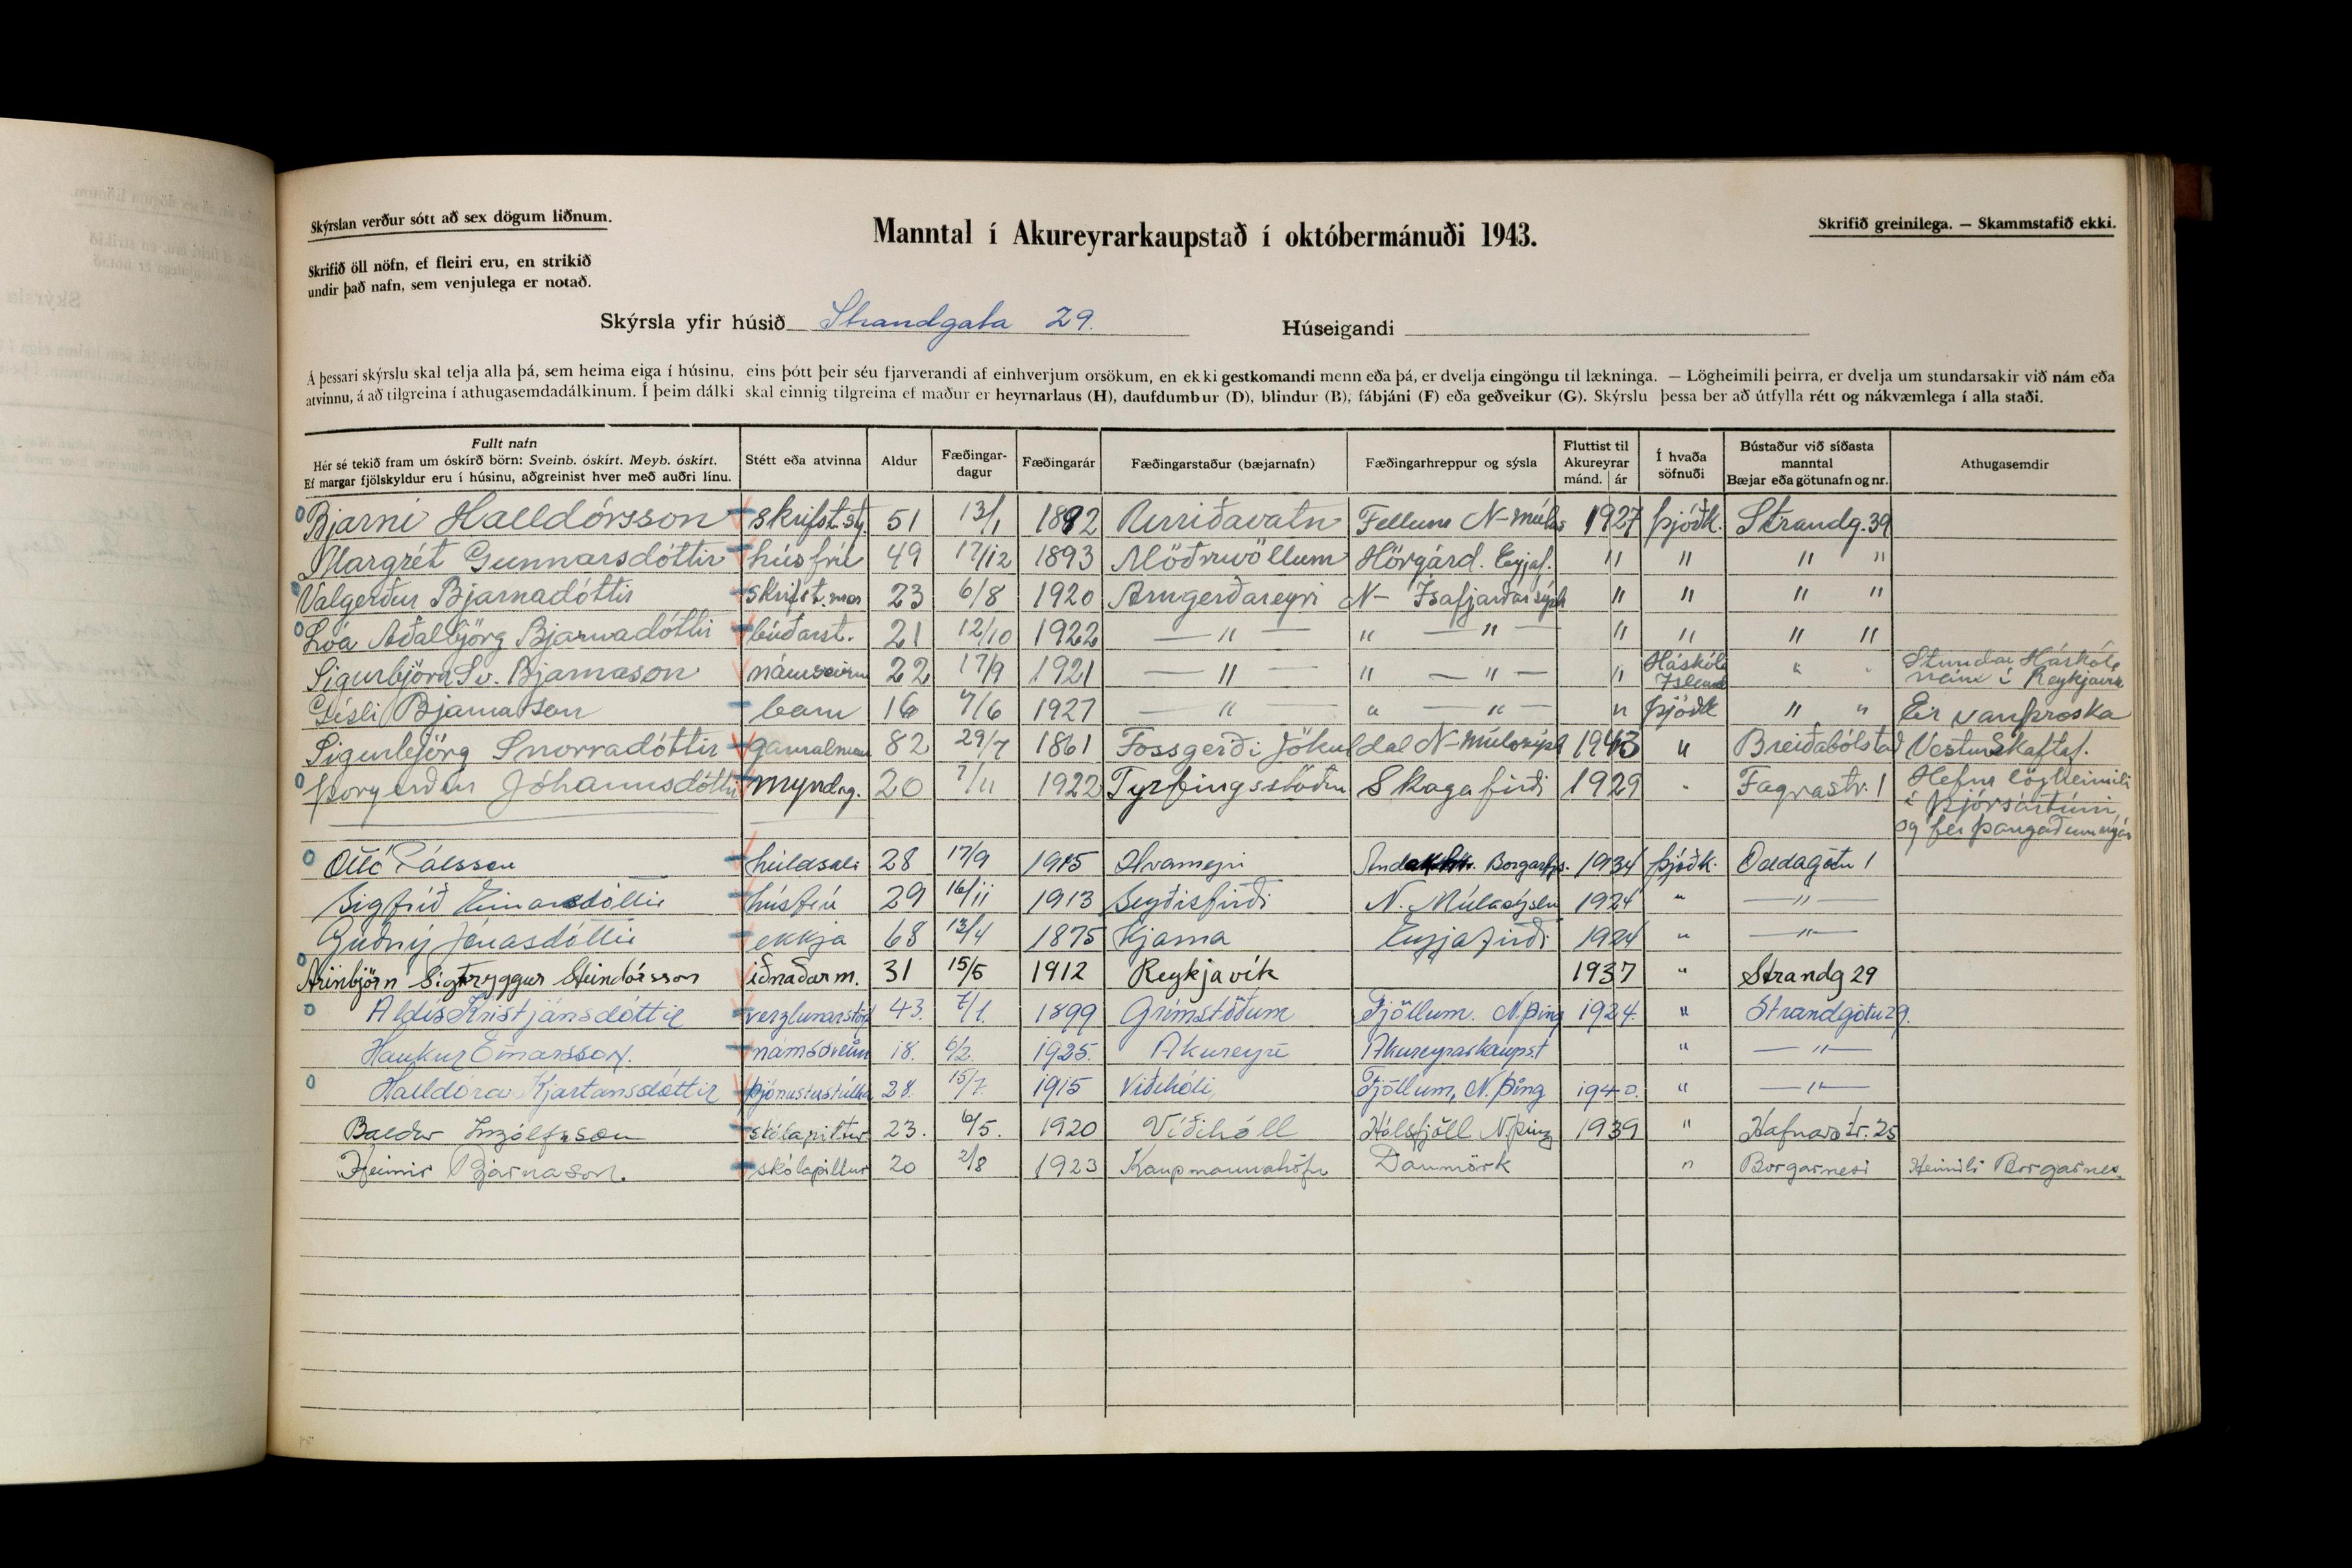 Skýrslan verður sótt að sex dögum liðnum.
Manntal í Akureyrarkaupstað í októbermánuði 1943.
Skrifið greinilega. — Skammstafið ekki.
Skrifið öll nöfn, ef fleiri eru, en strikið
undir það nafn, sem venjulega er notað.
Skýrsla yfir húsið Strandgata 29. Húseigandi
Á þessari skýrslu skal telja alla þá, sem heima eiga í húsinu, eins þótt þeir séu fjarverandi af einhverjum orsökum, en ekki gestkomandi menn eða þá, er dvelja eingöngu til lækninga. — Lögheimili þeirra, er dvelja um stundarsakir við nám eða
atvinnu, á að tilgreina í athugasemdadálkinum. Í þeim dálki skal einnig tilgreina ef maður er heyrnarlaus (H), daufdumbur (D), blindur (B), fábjáni (F) eða geðveikur (G). Skýrslu þessa ber að útfylla rétt og nákvæmlega í alla staði.
Fullt nafn
Hér sé tekið fram um óskírð börn: Sveinb. óskírt. Meyb. óskírt.
Ef margar fjölskyldur eru í húsinu, aðgreinist hver með auðri línu.
Stétt eða atvinna
Aldur
Fæðingar-
dagur
Fæðingarár
Fæðingarstaður (bæjarnafn)
Fæðingarhreppur og sýsla
Fluttist til
Akureyrar
mánd. ár
Í hvaða
söfnuði
Bústaður við síðasta
manntal
Bæjar eða götunafn og nr.
Athugasemdir
Bjarni Halldórsson skrifst.stj. 51 13/1 1892 Urriðavatn Fellum N-Múlas 1927 þjóðk. Strandg. 39
Margrét Gunnarsdóttir húsfrú 49 17/12 1893 Möðruvöllum Hörgárd. Eyjaf. " " " "
Valgerður Bjarnadóttir skrifst.mær 23 6/8 1920 Arngerðareyri N- Ísafjarðarsýsla " " " "
Lóa Aðalbjörg Bjarnadóttir búðarst. 21 12/10 1922 — " — " — " — " " " "
Sigurbjörn Sv. Bjarnason námsveinn 22 17/9 1921 — " — " — " — " Háskóla Íslands " " Stundar Háskóla
nám í Reykjavík
Gísli Bjarnason barn 16 7/6 1927 — " — " — " — " þjóðk " " Er vanþroska
Sigurbjörg Snorradóttir gamalmenni 82 29/7 1861 Fossgerði Jökuldal N-Múlasýsla 1943 " Breiðabólstað Vestur Skaftaf.
Þorgerður Jóhannsdóttir myndag. 20 7/11 1922 Tyrfingsstöðum Skagafirði 1929 " Fagrastr. 1 Hefur lögheimili
í Þjórsártúni
og fer þangað um nýár
Ottó Pálsson húldsali 28 17/9 1915 Hvanneyri Borgarfjs. 1934 þjóðk. Oddagötu 1
Sigfríð Einarsdóttir húsfrú 29 16/11 1913 Seyðisfirði N. Múlasýslu 1924 " — " —
Guðný Jónasdóttir ekkja 68 13/4 1875 Kjarna Eyjafirði 1924 " — " —
Arinbjörn Sigtryggur Steindórsson iðnaðarm. 31 15/5 1912 Reykjavík 1937 " Strandg 29
Aldís Kristjánsdóttir verzlunarstörf 43. 7/1. 1899 Grímstöðum Fjöllum. N.Þing 1924. " Strandgötu 29.
Haukur Einarsson. námsveinn 18. 6/2. 1925. Akureyri Akureyrarkaupst " — " —
Halldóra Kjartansdóttir þjónustustúlka 28. 15/7. 1915 Víðihóli, Fjöllum, N.Þing 1940. " — " —
Baldur Ingólfsson skólapiltur 23. 6/5. 1920 Víðihóll Hólsfjöll N.Þing 1939 " Hafnarstr. 25
Heimir Bjarnason. skólapiltur 20 2/8 1923 Kaupmannahöfn Danmörk " Borgarnesi Heimili Borgarnes.